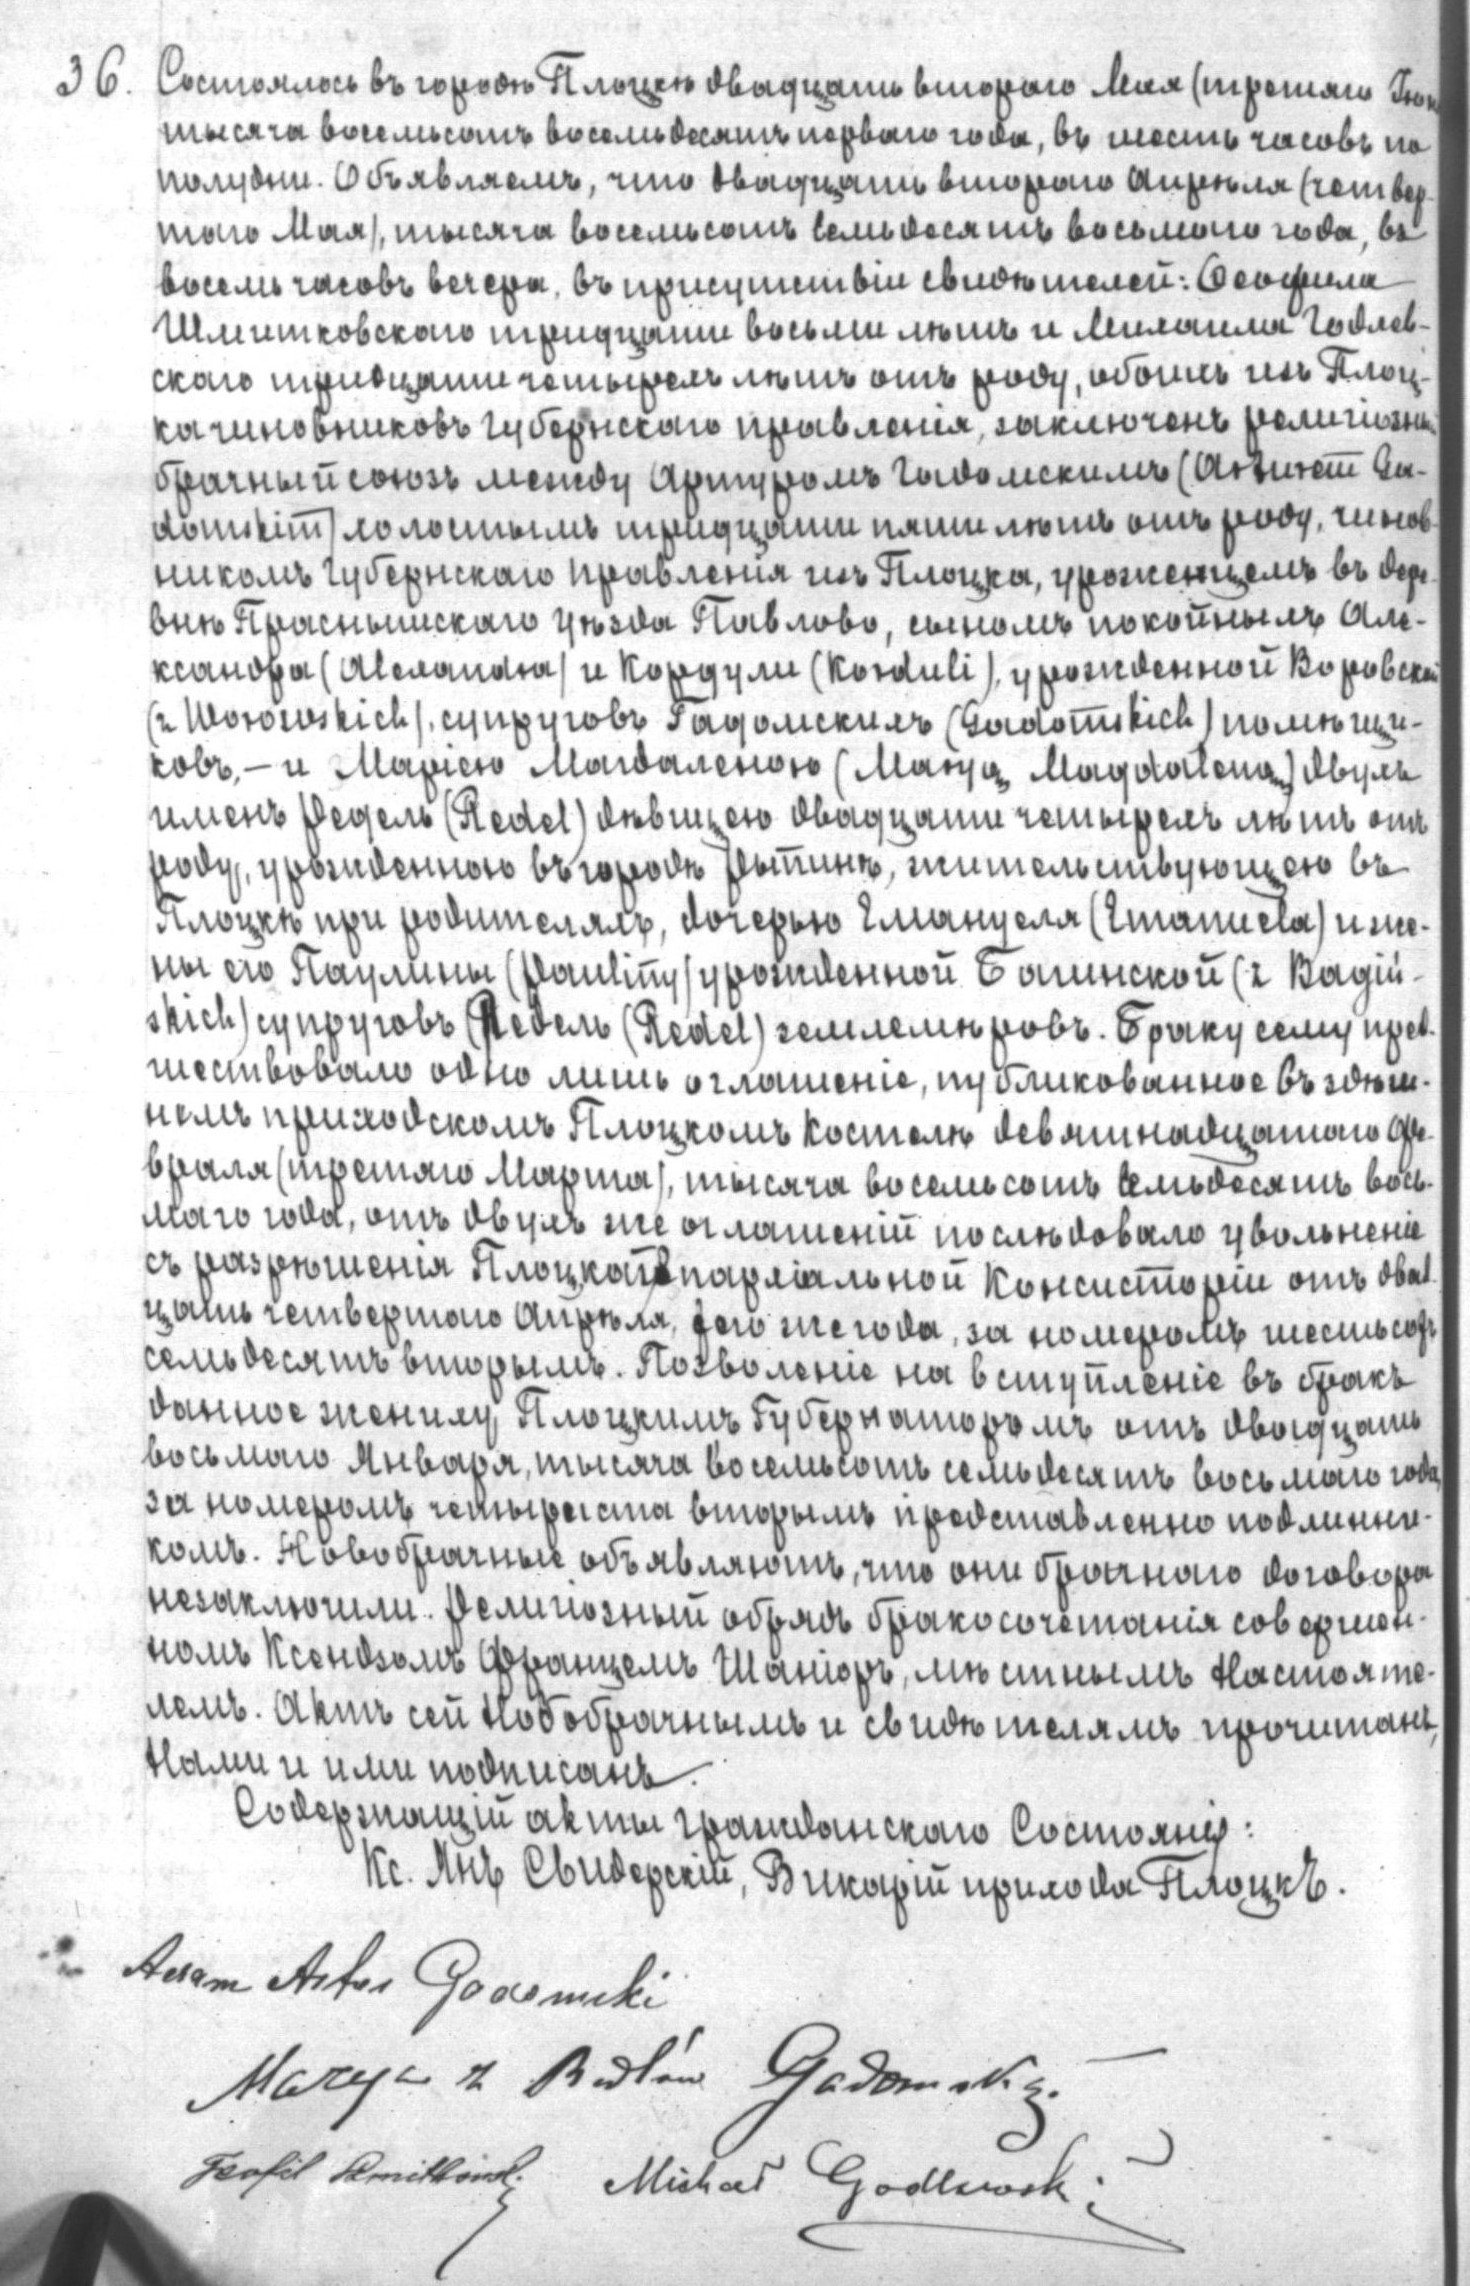 36. Состоялось въ городѣ Плоцкѣ двадцать втораго Мая (третяго Іюня
тысяча восемьсотъ восемьдесятъ перваго года, въ шесть часовъ по
полудни. Объявляемъ, что двадцать втораго Апрѣля (четвер-
таго Мая), тысяча восемьсотъ семьдесятъ восьмаго года, въ
восемь часовъ вечера, въ присутствіи свидѣтелей: Ѳеофила
Шмитковскаго тридцати восьми лѣтъ и Михаила Годлев-
скаго тридцати четырехъ лѣтъ отъ роду, обоихъ изъ Плоц-
ка чиновниковъ Губернскаго правленія, заключенъ религіозный
брачный союзъ между Артуромъ Гадомскимъ (Arturem Ga-
domskim) холостымъ тридцати пяти лѣтъ отъ роду, чинов-
никомъ Губернскаго Правленія изъ Плоцка, уроженцемъ въ дере-
внѣ Праснышскаго уѣзда Павлово, сыномъ покойныхъ Але-
ксандра (Alexandra) и Кордули (Korduli), урожденной Воровской
(z Worowskich), супруговъ Гадомскихъ (Gadomskich) помѣщи-
ковъ, — и Маріею Магдаленою (Maryą Magdaleną) двухъ
именъ Редель (Redel) дѣвицею двадцати четырехъ лѣтъ отъ
роду, урожденною въ городѣ Рыпинѣ, жительствующею въ
Плоцкѣ при родителяхъ, дочерью Эмануеля (Emanuela) и же-
ны его Паулины (Pauliny) урожденной Багинской (z Bagiń-
skich) супруговъ Редель (Redel) землемѣровъ. Браку сему пред-
шествовало одно лишь оглашеніе, публикованное въ здѣш-
немъ приходскомъ Плоцкомъ Костелѣ девятнадцатаго Фе-
враля (третяго Марта), тысяча восемьсотъ семьдесятъ вось-
маго года, отъ двухъ же оглашеній послѣдовало увольненіе
съ разрѣшенія Плоцкой Епархіальной Консисторіи отъ двад-
цать четвертаго Апрѣля, сего же года, за номеромъ шестьсотъ
семьдесятъ вторымъ. Позволеніе на вступленіе въ бракъ
данное жениху Плоцкимъ Губернаторомъ отъ двадцать
восьмаго Января, тысяча восемьсотъ семьдесятъ восьмаго года,
за номеромъ четыреста вторымъ представленно подлинни-
комъ. Новобрачные объявляютъ, что они брачнаго договора
незаключили. Религіозный обрядъ бракосочетанія совершен-
номъ Ксендзомъ Францемъ Шаніоръ, мѣстнымъ Настояте-
лемъ. Актъ сей Новобрачнымъ и свидѣтелямъ прочитанъ,
Нами и ими подписанъ.
Содержащій акты Гражданскаго Состоянія:
Кс. Янъ Свидерскій, Викарій прихода Плоцкъ.
Adam Artur Gadomski
Marya z Redlów Gadomska.
Teofil Szmitkowski Michał Godlewski